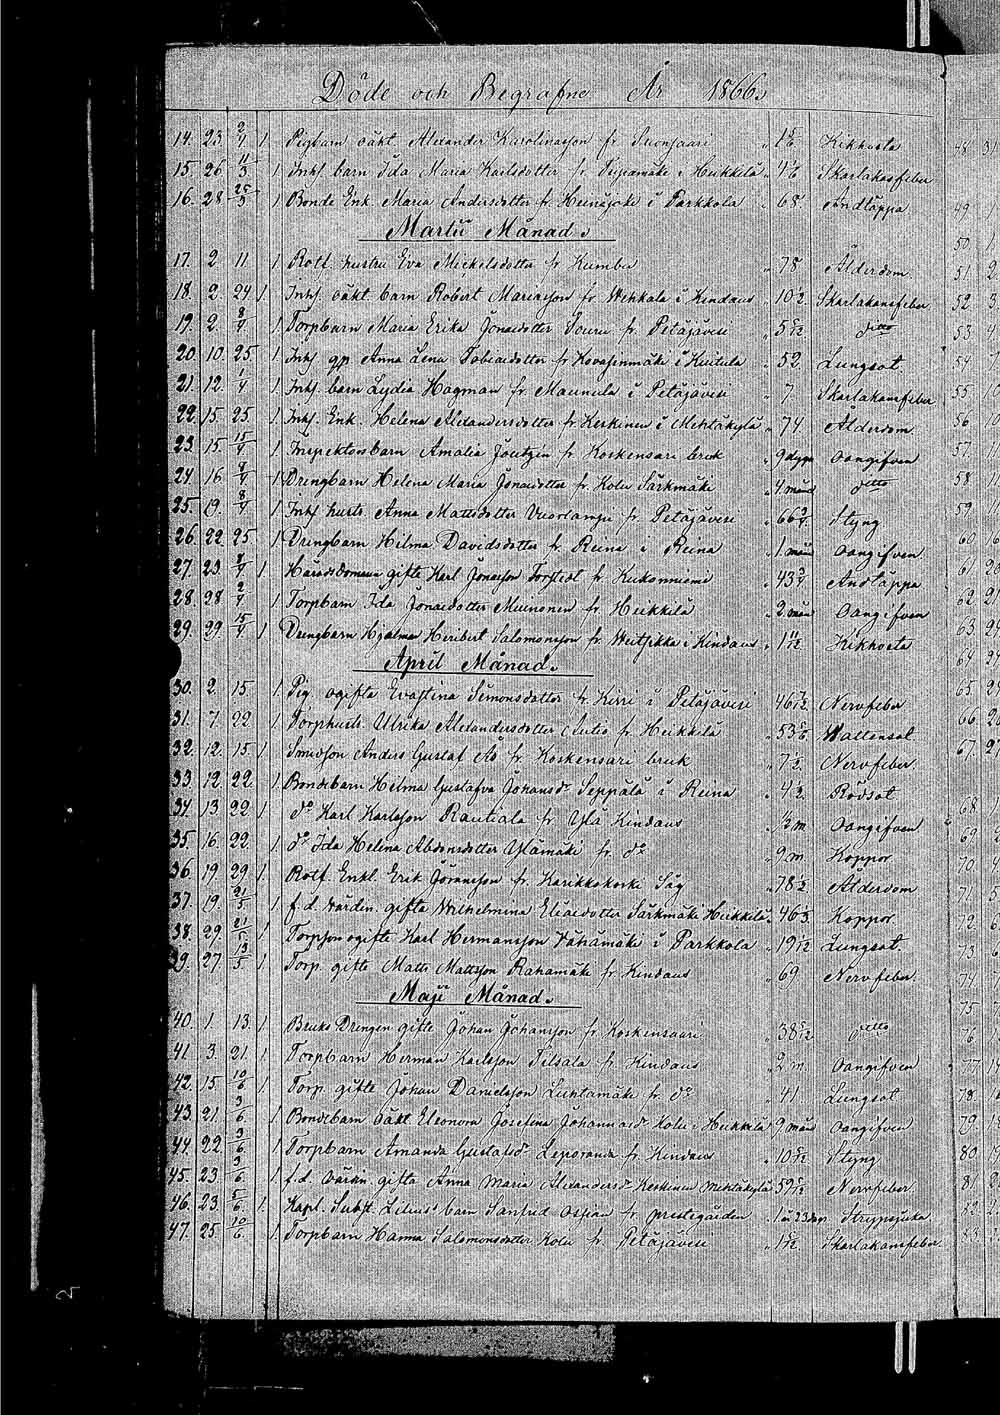 Döde och Begrafne År 1866.
14. 23 2/4 1. Pigbarn oäkt. Alexander Karolinason fr. Suonsaari Kikhosta
15. 26 11/3 1. Inhs barn Ida Maria Karlsdotter fr. i Heikkilä Skarlakansfeber
16. 28 25/3 1. Bonde Enk. Maria Andersdotter fr. Heinäjoki i Parkkola 68 Andtäppa
Martii Månad.
17. 2. 11. 1. Rotf. hustru Eva Mickelsdotter fr. Kumbu 78 Ålderdom
18. 2. 24 1. Inhs. oäkt. barn Robert Mariasson fr. Wehkala i Kindaus 10 1/2 Skarlakansfeber
19. 2. 8/4 1. Torpbarn Maria Erika Jonaedotter Souru fr. Petäjävesi 5 5/12 ditto
20. 10. 25 1. Inhs gp Anna Lena Tobiaedotter fr. Kovasinmäki i Kuitula 52 Lungsot
21. 12. 1/4 1. Inhs. barn Lydia Hagman fr. Maunula i Petäjävesi 7 Skarlakansfeber
22. 15. 25. 1. Inhs. Enk. Helena Alexandersdotter fr. Keskinen i Mehtäkylä 74 Ålderdom
23. 15. 15/4 1. Inspektorsbarn Amalia fr. Koskensari bruk 9 dygn Oangifven
24. 16. 8/4 1. Drengbarn Helena Maria Jonaedotter fr. Kolu Särkmäki 4 mån ditto
25. 19. 8/4 1. Inhs hustr. Anna Mattsdotter Vuorlampi fr. Petäjävesi 66 3/4 Styng
26. 22. 25 1. Drengbarn Hilma Davidsdotter fr. Reina i Reina 1 mån Oangifven
27. 23. 8/4 1. Häradsdomare gifte Karl Jonasson Forstedt fr. Kukonniemi 43 3/4 Andtäppa
28. 28 2/4 1. Torpbarn Ida Jonaedotter Muinonen fr. Heikkilä 2 mån Oangifven
29. 29. 15/4 1. Drengbarn Hjalmar Heribert Salomonsson fr. i Kindaus 1 11/12 Kikhosta
April Månad.
30. 2. 15. 1. Pig. ogifta Evastina Simonsdotter fr. Kirri i Petäjävesi 46 7/12 Nervfeber
31. 7. 22. 1. Torphustr. Ulrika Alexandersdotter Autio fr. Heikkilä 53 5/6 Wattensot
32. 12. 15. 1. Smedson Anders Gustaf Ås fr. Koskensari bruk 7 1/2 Nervfeber
33. 12. 22. 1. Bondebarn Hilma Gustafva Johansdr Seppälä i Reina 4 1/2 Rödsot
34. 13. 22 1. do Karl Karlsson Rautiala fr. Ylä Kindaus 1/2 m Oangifven
35. 16. 22. 1. do Ida Helena Abdonsdotter Ylämäki fr. do 9 m Koppor
36. 19 29 1. Rotf. Enkl. Erik Göransson fr. Karikkokoski Såg 78 1/2 Ålderdom
37. 19. 21/5 1. f.d. gifta Wilhelmina Eliaedotter Särkmäki Heikkilä 46 1/3 Koppor
38. 29. 21/5 1. Torpson ogifte Karl Hermansson Vähämäki i Parkkola 19 1/12 Lungsot
39. 27. 13/5 1. Torp. gifte Matts Mattsson Rahamäki fr. Kindaus 69 Nervfeber
Maji Månad.
40. 1. 13. 1. Bruks Drengen gifte Johan Johansson fr. Koskensaari 38 5/12 ditto
41. 3. 21. 1. Torpbarn Herman Karlsson Tilsala fr. Kindaus 2 m. Oangifven
42. 15 10/6 1. Torp. gifte Johan Danielsson Luhtamäki fr. do 41 Lungsot
43. 21. 3/6 1. Bondebarn oäkt Eleonora Josefina Johannaedr Kolu i Heikkilä 9 mån Oangifven
44. 22. 3/6 1. Torpbarn Amanda Gustafsdr Leporanda fr. Kindaus 10 5/12 Styng
45. 23. 3/6 1. f.d. gifta Anna Maria Alexandersdr Keskinen Mehtäkylä 59 5/12 Nervfeber
46. 23. 5/6 1. Kapl. Subst. Lilius's barn Sanfrid Ossian fr. prestegården 1 å 23 dgn Strypsjuka
47. 25. 10/6 1. Torpbarn Hanna Salomonsdotter Kolu fr. Petäjävesi 1 5/12 Skarlakansfeber